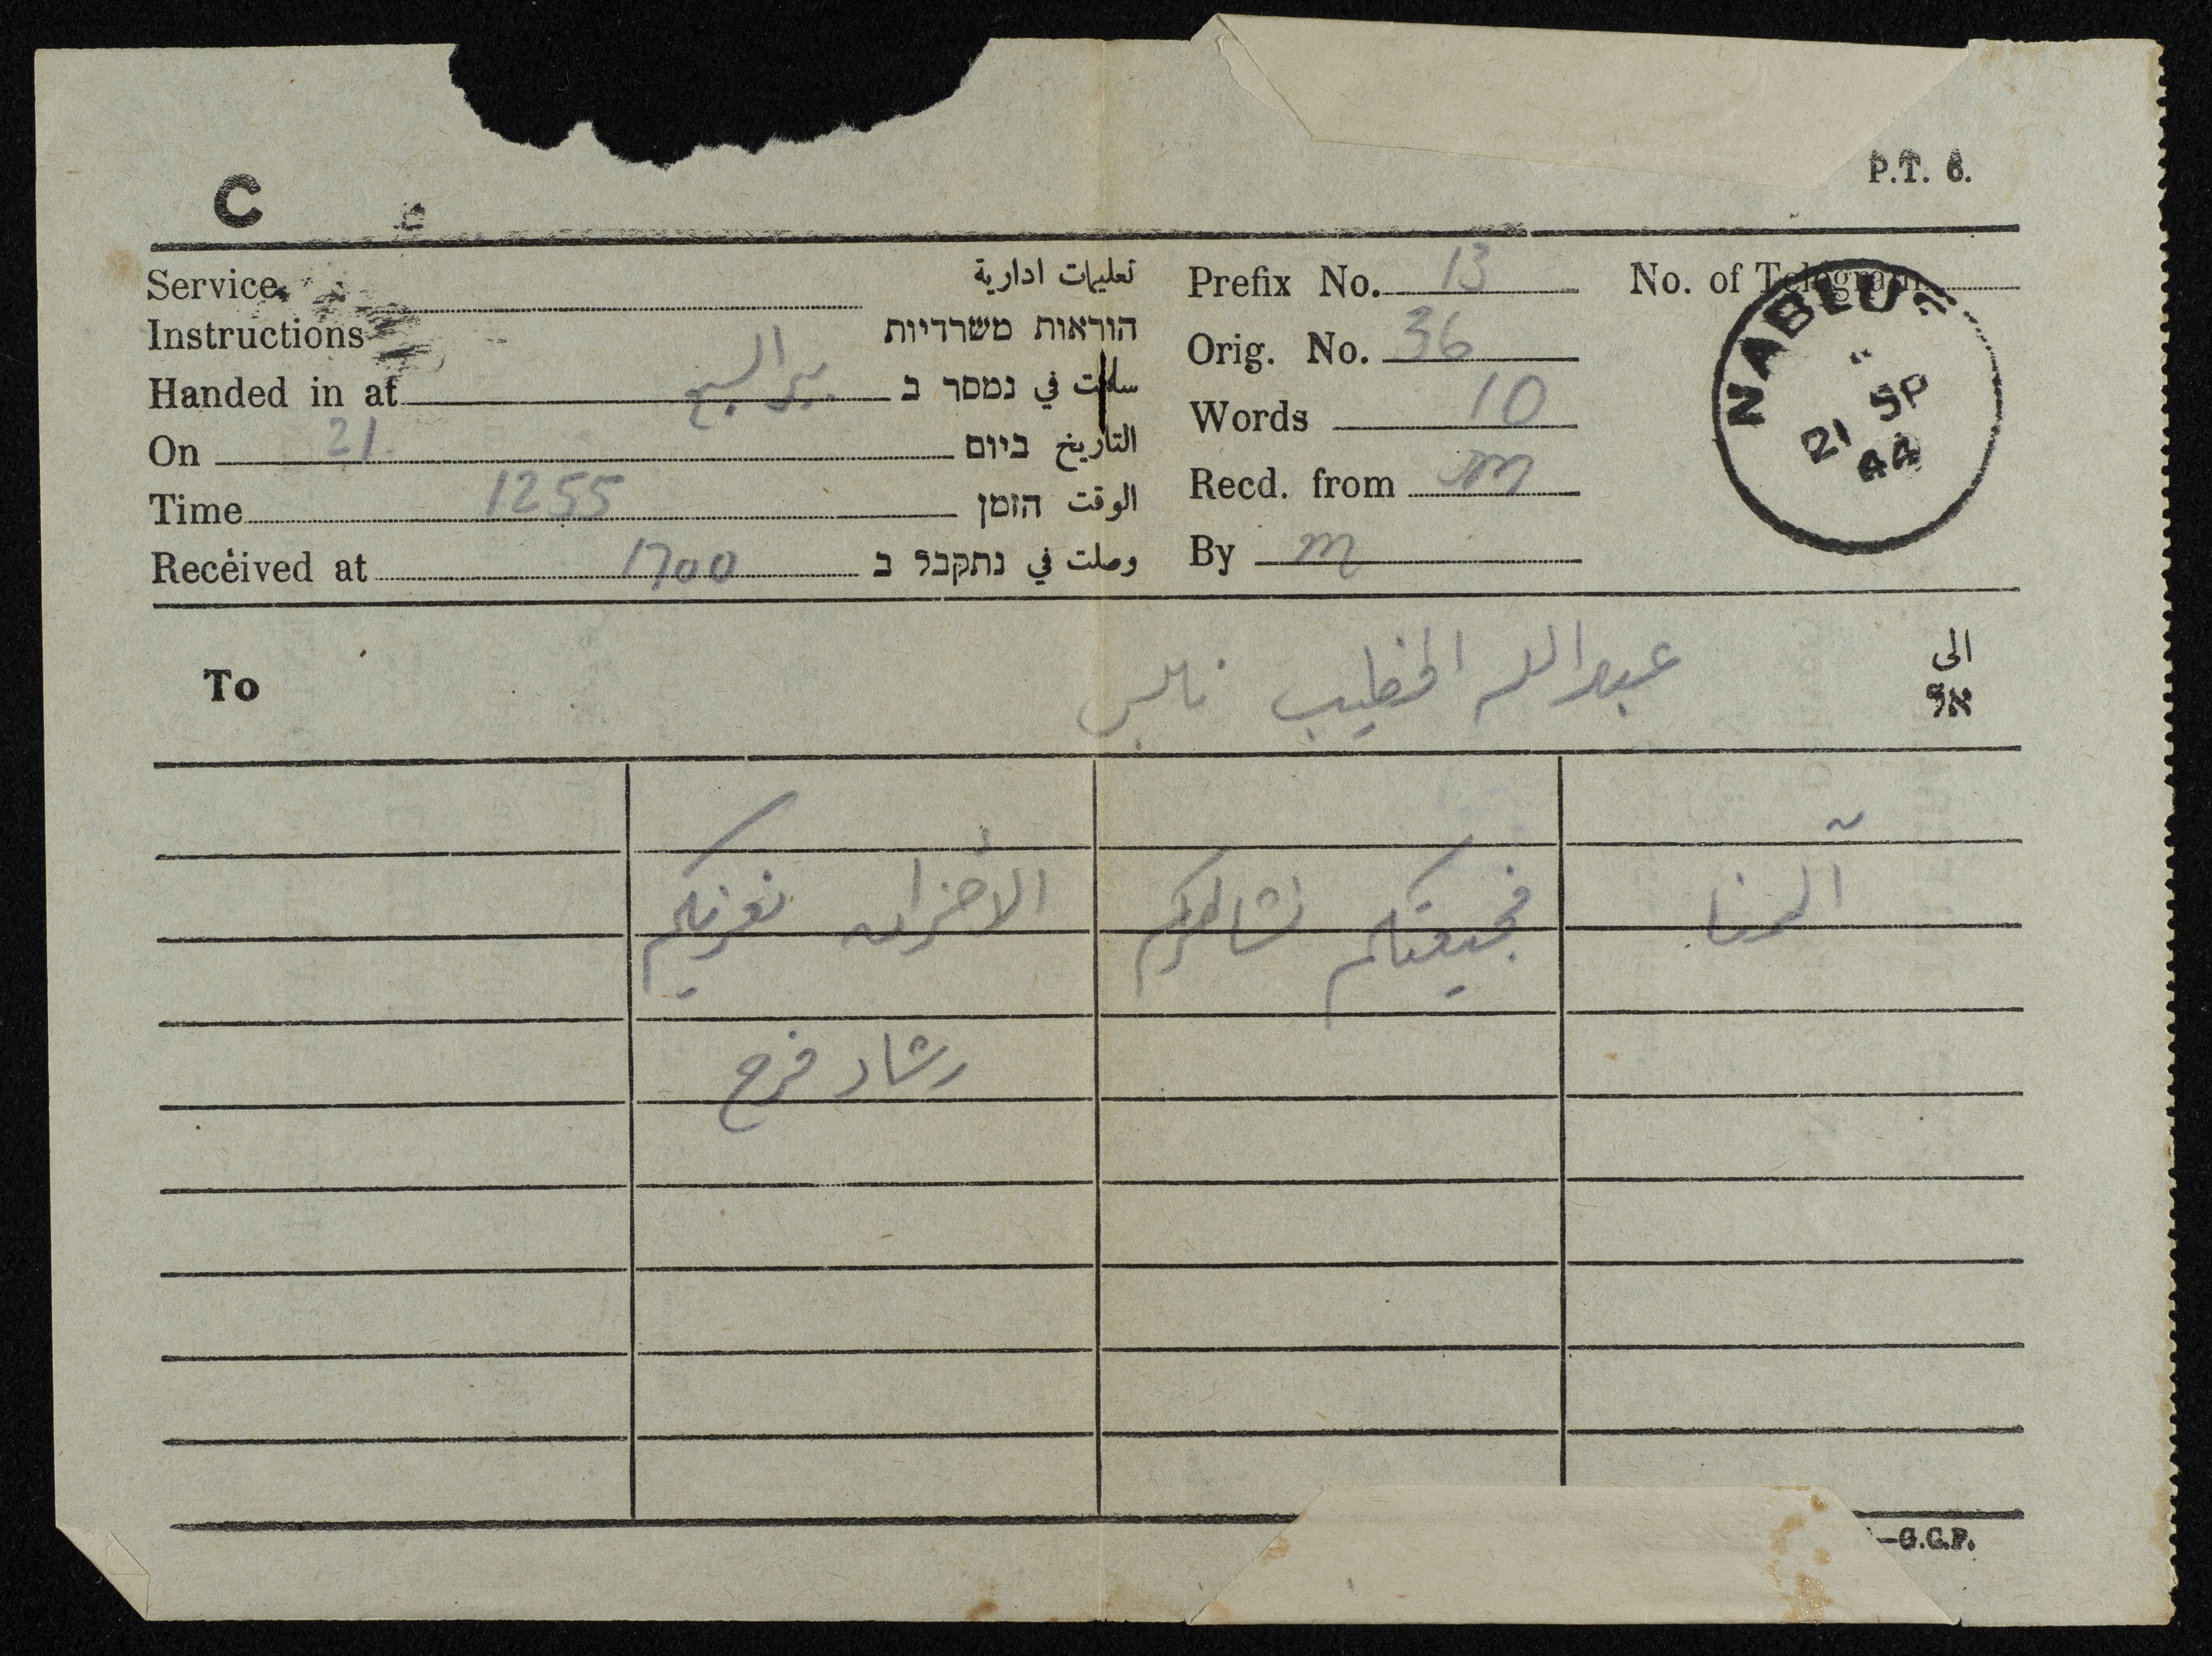 P.T. 6.
C
Service تعليمات ادارية
Instructions הוראות משרדיות
Handed in at بير السبع سلمت في נמסר ב
On 21 التاريخ ביום
Time 1255 الوقت הזמן
Received at 1700 وصلت في נתקבל ב
Prefix No. 13
Orig. No. 36
Words 10
Recd. from m
By m
No. of Telegram
NABLUS
21 SP
44
To عبدالله الخطيب نابلس الى
אל
آلمنا فجيعتكم نشاطركم الأحزان نعزيكم
رشاد فرح
—G.C.P.